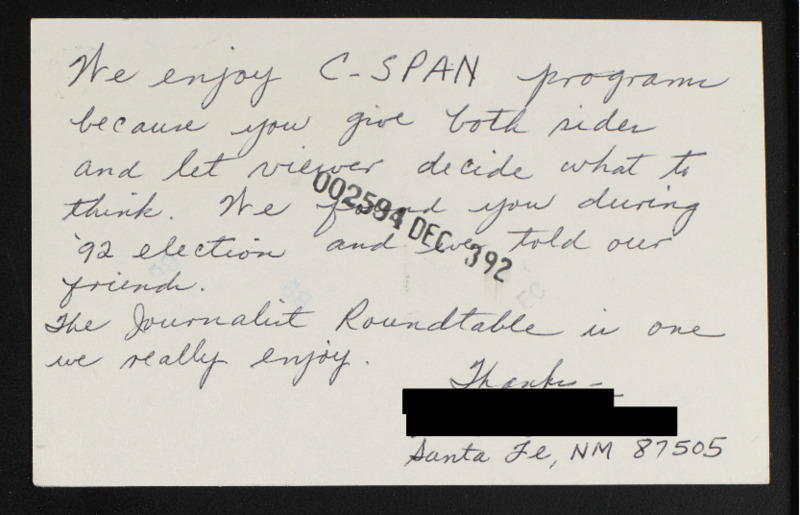 We enjoy C-SPAN programs
because you give both sides
and let viewer decide what to
think. We found you during
'92 election and even told our
friends.
The Journalist Roundtable is one
we really enjoy.
Thanks -
Santa Fe, NM 87505
002594 DEC -3 92